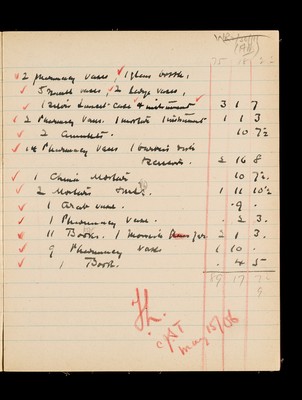 75 18 2½
2 pharmacy vases, 1 glass bottle,
5 small vases, 2 large vases,
1 Lancet-case & instrument 3 1 7
2 Pharmacy Vases. 1 mortar 1 instrument 1 1 3
2 Amulets. 10 7½
14 Pharmacy Vases 1 2 16 8
1 China Mortar 10 7½
2 Mortars 1 11 10½
1 Arab vase. . 9 .
1 Pharmacy Vase. . 2 3.
11 Books. 1 Jar 2 1 3.
9 Pharmacy Vases 1 10 .
1 Book. . 4 5
89 17
9
CAT
May 15/08